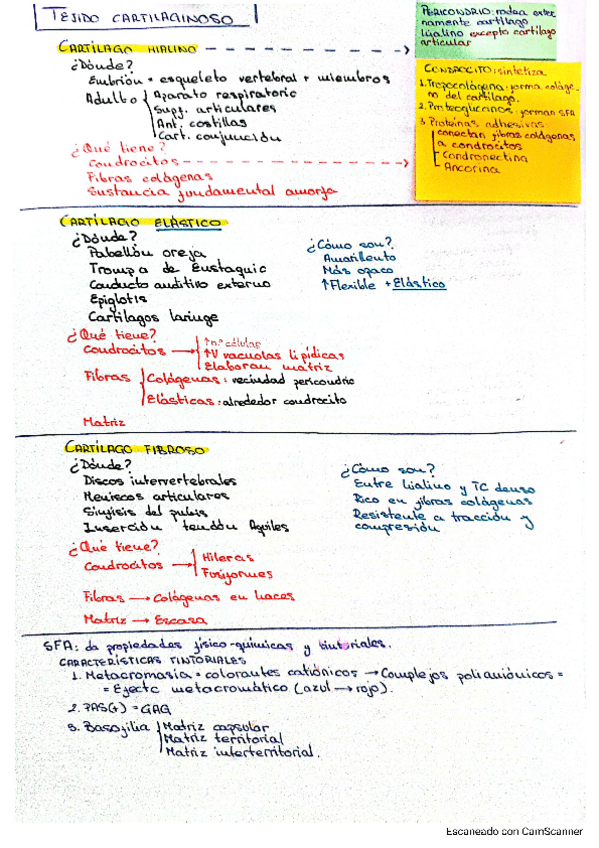 TEJIDO CARTILAGINOSO
PERICONDRIO: rodea exter
namente cartílago
hialino excepto cartílago
articular
CARTÍLAGO HIALINO
¿Dónde?
Embrión = esqueleto vertebral + miembros
Adulto
Aparato respiratorio
Supf. articulares
Ant. costillas
Cart. conjunción
¿Qué tiene?
Condrocitos
Fibras colágenas
Sustancia fundamental amorfa
CONDROCITO: sintetiza
1. Tropocolágena: forma coláge-
no del cartílago.
2. Proteoglicanos: forman SFA
3. Proteínas adhesivas
conectan fibras colágenas
a condrocitos
Condronectina
Ancorina
CARTÍLAGO ELÁSTICO
¿Dónde?
Pabellón oreja
Trompa de Eustaquio
Conducto auditivo externo
Epiglotis
Cartílagos laringe
¿Cómo son?
Amarillento
Más opaco
↑Flexible + Elástico
¿Qué tiene?
Condrocitos →
↑nº células
↑V vacuolas lipídicas
Elaboran matriz
Fibras
Colágenas: vecindad pericondrio
Elásticas: alrededor condrocito
Matriz
CARTÍLAGO FIBROSO
¿Dónde?
Discos intervertebrales
Meniscos articulares
Sínfisis del pubis
Inserción tendón Aquiles
¿Cómo son?
Entre hialino y TC denso
Rico en fibras colágenas
Resistente a tracción y
compresión
¿Qué tiene?
Condrocitos →
Hileras
Fusiformes
Fibras → Colágenas en haces
Matriz → Escasa
SFA: da propiedades físico-químicas y tintoriales.
CARACTERÍSTICAS TINTORIALES
1. Metacromasia = colorantes catiónicos → Complejos polianiónicos =
= Efecto metacromático (azul → rojo).
2. PAS(+) = GAG
3. Basofilia
Matriz capsular
Matriz territorial
Matriz interterritorial.
Escaneado con CamScanner